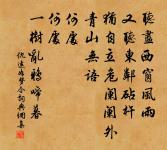 聽盡西窗風雨
又聽東鄰砧杵
猶自立危闌闌外
青山無語
何處
何處
一樹亂鴉啼暮
仇遠如夢令詞典網集